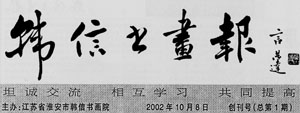 韩信书画报
坦诚交流 相互学习 共同提高
主办:江苏省淮安市韩信书画院 2002年10月8日 创刊号(总第1期)